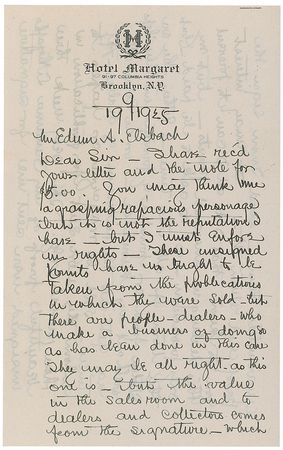 H
Hotel Margaret
91-97 Columbia Heights
Brooklyn, N.Y.
9
19 1925
Mr Edwin A. Elsbach
Dear Sir – I have rec'd
your letter and the note for
$5.00. You may think me
a grasping rapacious personage
but it is not the reputation I
have – but I must enforce
my rights – These unsigned
prints have no right to be
taken from the publications
in which the were sold – but
there are people – dealers – who
make a business of doing so
as has been done in this case
They may be all right – as this
one is – but the value
in the salesroom and to
dealers and collectors comes
from the signature – which